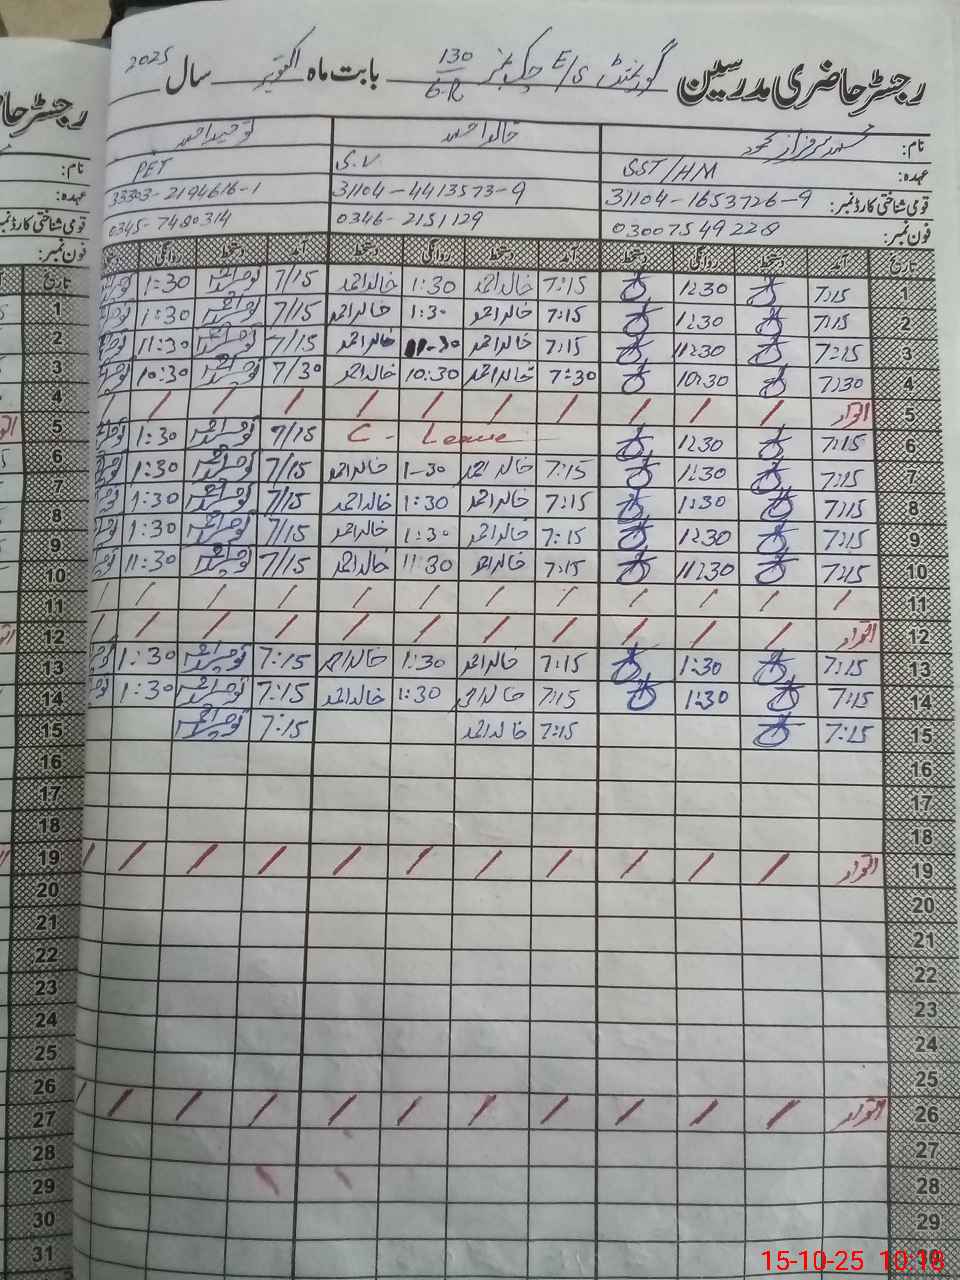 رجسٹر حاضری مدرسین گورنمنٹ E/S چک نمبر 130/6-R بابت ماہ اکتوبر سال 2025
نام: محمد سرفراز محمود خالد احمد توحید احمد
عہدہ: SST/HM S.V PET
قومی شناختی کارڈ نمبر: 31104-1653726-9 31104-4413573-9 33303-2194616-1
فون نمبر: 03007549228 0346-2151129 0345-7480314
تاریخ آمد دستخط روانگی دستخط آمد دستخط روانگی دستخط آمد دستخط روانگی دستخط
1 7:15 1:30 7:15 خالد احمد 1:30 خالد احمد 7/15 توحید احمد 1:30
2 7:15 1:30 7:15 خالد احمد 1:30 خالد احمد 7/15 توحید احمد 1:30
3 7:15 11:30 7:15 خالد احمد 11-30 خالد احمد 7/15 توحید احمد 11:30
4 7:30 10:30 7:30 خالد احمد 10:30 خالد احمد 7/30 توحید احمد 10:30
5 اتوار / / / / / / / / / /
6 7:15 1:30 C - Leave 7/15 توحید احمد 1:30
7 7:15 1:30 7:15 خالد احمد 1-30 خالد احمد 7/15 توحید احمد 1:30
8 7:15 1:30 7:15 خالد احمد 1:30 خالد احمد 7/15 توحید احمد 1:30
9 7:15 1:30 7:15 خالد احمد 1:30 خالد احمد 7/15 توحید احمد 1:30
10 7:15 11:30 7:15 خالد احمد 11:30 خالد احمد 7/15 توحید احمد 11:30
11 / / / / / / / / / / /
12 اتوار / / / / / / / / / /
13 7:15 1:30 7:15 خالد احمد 1:30 خالد احمد 7:15 توحید احمد 1:30
14 7:15 1:30 7:15 خالد احمد 1:30 خالد احمد 7:15 توحید احمد 1:30
15 7:15 7:15 خالد احمد 7:15 توحید احمد
16
17
18
19 اتوار / / / / / / / / / /
20
21
22
23
24
25
26 اتوار / / / / / / / / / /
27
28
29
30
15-10-25 10:18